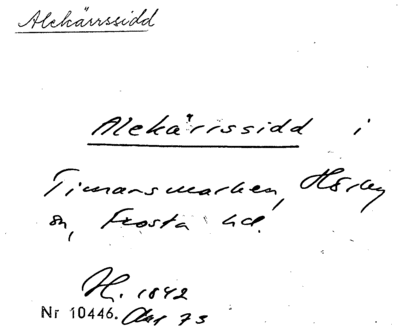 Alekärrssidd
Alekärrssidd i
Timansmarken, Hörby
sn, Frosta hd.
H. 1842
Nr 10446. Akt 73